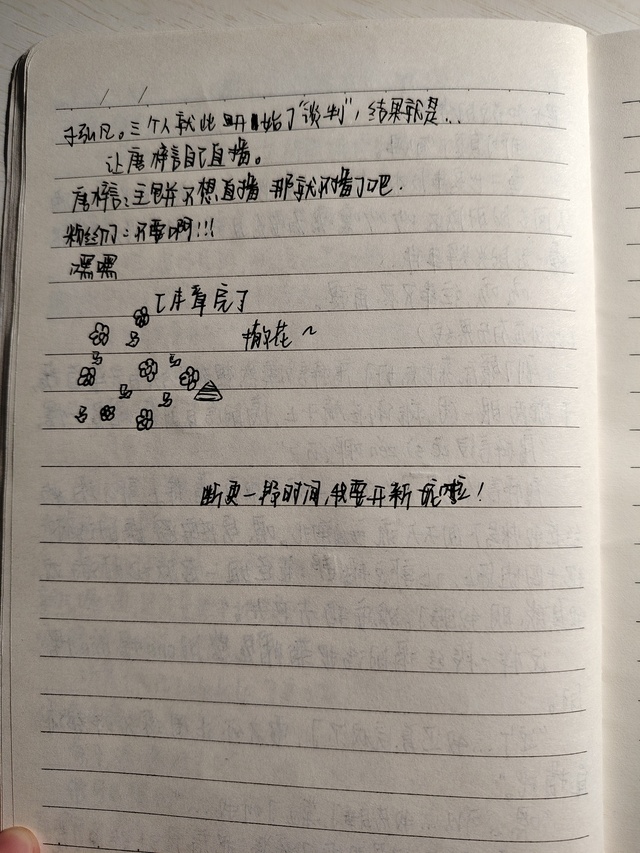 于弘凡。三个人就此开始了"谈判"，结果就是...
让唐梓言自己直播。
唐梓言：主包并不想直播 那就不播了吧.
粉丝们：不要啊!!!
嘿嘿
亡本章完了
撒花~
断更一段时间,我要开新坑啦!